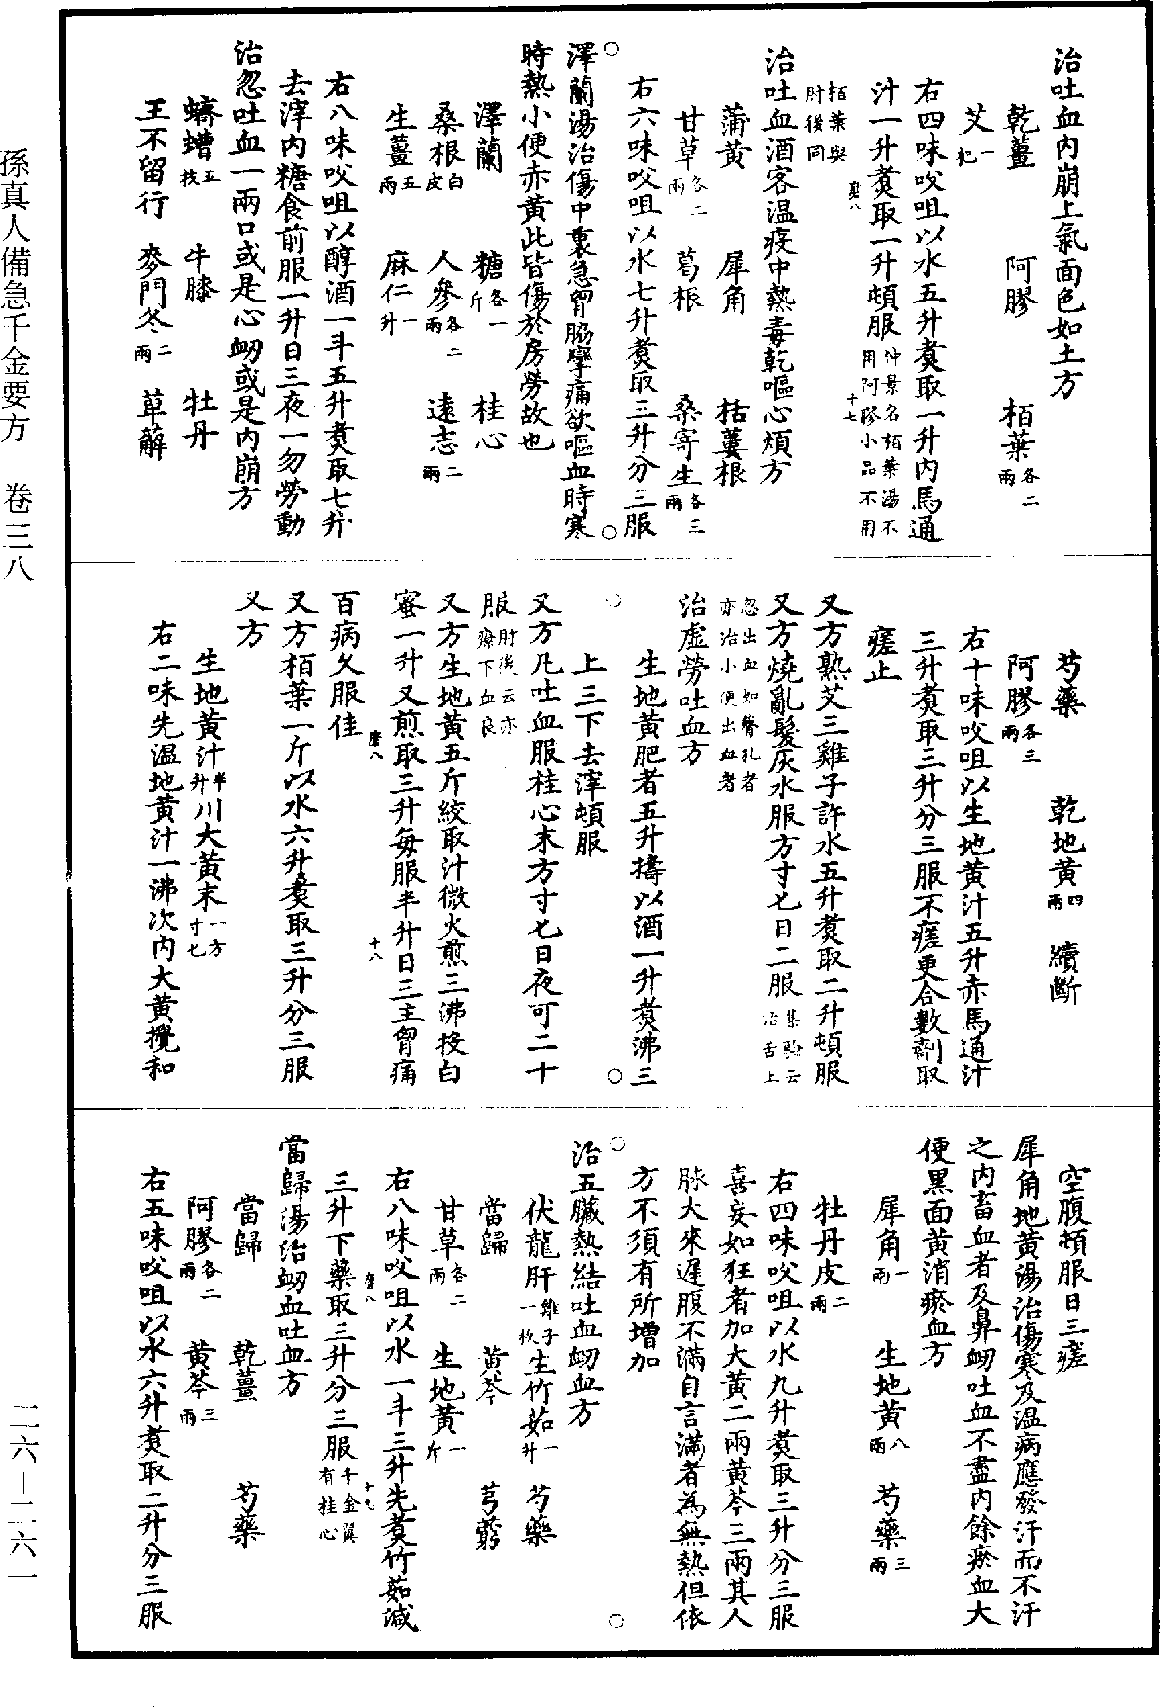 治吐血內崩上氣面色如土方
乾薑　阿膠　栢葉各二兩
艾一把
右四味㕮咀以水五升煑取一升內馬通
汁一升煑取一升頓服仲景名栢葉湯不用阿膠小品不用
栢葉與肘後同
治吐血酒客温疫中熱毒乾嘔心煩方
蒲黃　犀角　栝蔞根
甘草各二兩　葛根　桑寄生各三兩
右六味㕮咀以水七升煑取三升分三服
澤蘭湯治傷中裏急胷脇攣痛欲嘔血時寒
時熱小便赤黃此皆傷於房勞故也
澤蘭　糖各一斤　桂心
桑根白皮　人參各二兩　遠志二兩
生薑五兩　麻仁一升
右八味㕮咀以醇酒一斗五升煑取七升
去滓內糖食前服一升日三夜一勿勞動
治忽吐血一兩口或是心衂或是內崩方
蠐螬五枚　牛膝　牡丹
王不留行　麥門冬二兩　萆薢
芍藥　乾地黃四兩　續斷
阿膠各三兩
右十味㕮咀以生地黃汁五升赤馬通汁
三升煑取三升分三服不瘥更合數劑取
瘥止
又方熟艾三雞子許水五升煑取二升頓服
又方燒亂髮灰水服方寸匕日二服集驗云治舌上
忽出血如簪孔者亦治小便出血者
治虛勞吐血方
生地黃肥者五升擣以酒一升煑沸三
上三下去滓頓服
又方凡吐血服桂心末方寸匕日夜可二十
服肘後云亦療下血良
又方生地黃五斤絞取汁微火煎三沸投白
蜜一升又煎取三升每服半升日三主胷痛
百病久服佳
又方栢葉一斤以水六升煑取三升分三服
又方
生地黃汁半升川大黃末一方寸匕
右二味先温地黃汁一沸次內大黃攪和
空腹頓服日三瘥
犀角地黃湯治傷寒及温病應發汗而不汗
之內畜血者及鼻衂吐血不盡內餘瘀血大
便黑面黃消瘀血方
犀角一兩　生地黃八兩　芍藥三兩
牡丹皮二兩
右四味㕮咀以水九升煑取三升分三服
喜妄如狂者加大黃二兩黃芩三兩其人
脉大來遲腹不滿自言滿者為無熱但依
方不須有所增加
治五臟熱結吐血衂血方
伏龍肝雞子一枚生竹茹一升　芍藥
當歸　黃芩　芎藭
甘草各二兩　生地黃一斤
右八味㕮咀以水一斗三升先煑竹茹減
三升下藥取三升分三服千金翼有桂心
當歸湯治衂血吐血方
當歸　乾薑　芍藥
阿膠各二兩　黃芩三兩
右五味㕮咀以水六升煑取二升分三服
孫真人備急千金要方　卷三八
二六—二六一